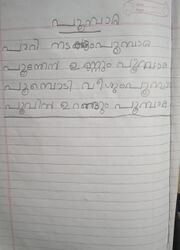 പൂമ്പാറ്റ
പാറി നടക്കും പൂമ്പാറ്റ
പൂന്തേൻ ഉണ്ണും പൂമ്പാറ്റ
പൂമ്പൊടി വീശും പൂമ്പാറ്റ
പൂവിൽ ഉറങ്ങും പൂമ്പാറ്റ